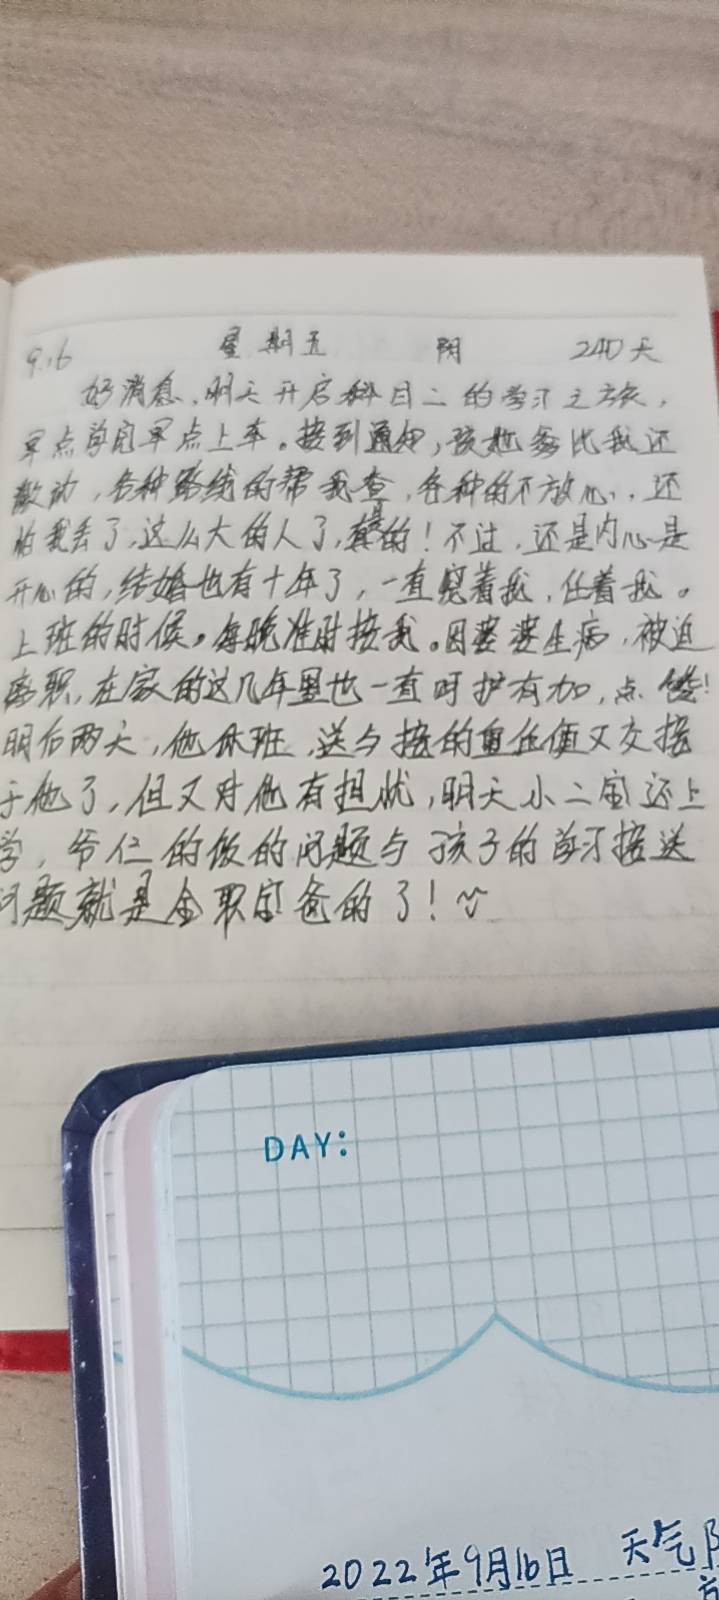 9.16 星期五 阴 240天
好消息,明天开启科目二的学习之旅,
早点学完早点上车。接到通知,孩她爹比我还
激动,各种路线的帮我查,各种的不放心,还
怕我丢了,这么大的人了,真是的!不过,还是内心是
开心的,结婚也有十年了,一直宠着我,任着我。
上班的时候。每晚准时接我。因婆婆生病,被迫
离职,在家的这几年里也一直呵护有加,点赞!
明后两天,他休班,送与接的重任便又交接
于他了,但又对他有担忧,明天小二宝还上
学,爷仨的饭的问题与孩子的学习接送
问题就是全职宝爸的了!
DAY:
2022年9月16日 天气阴